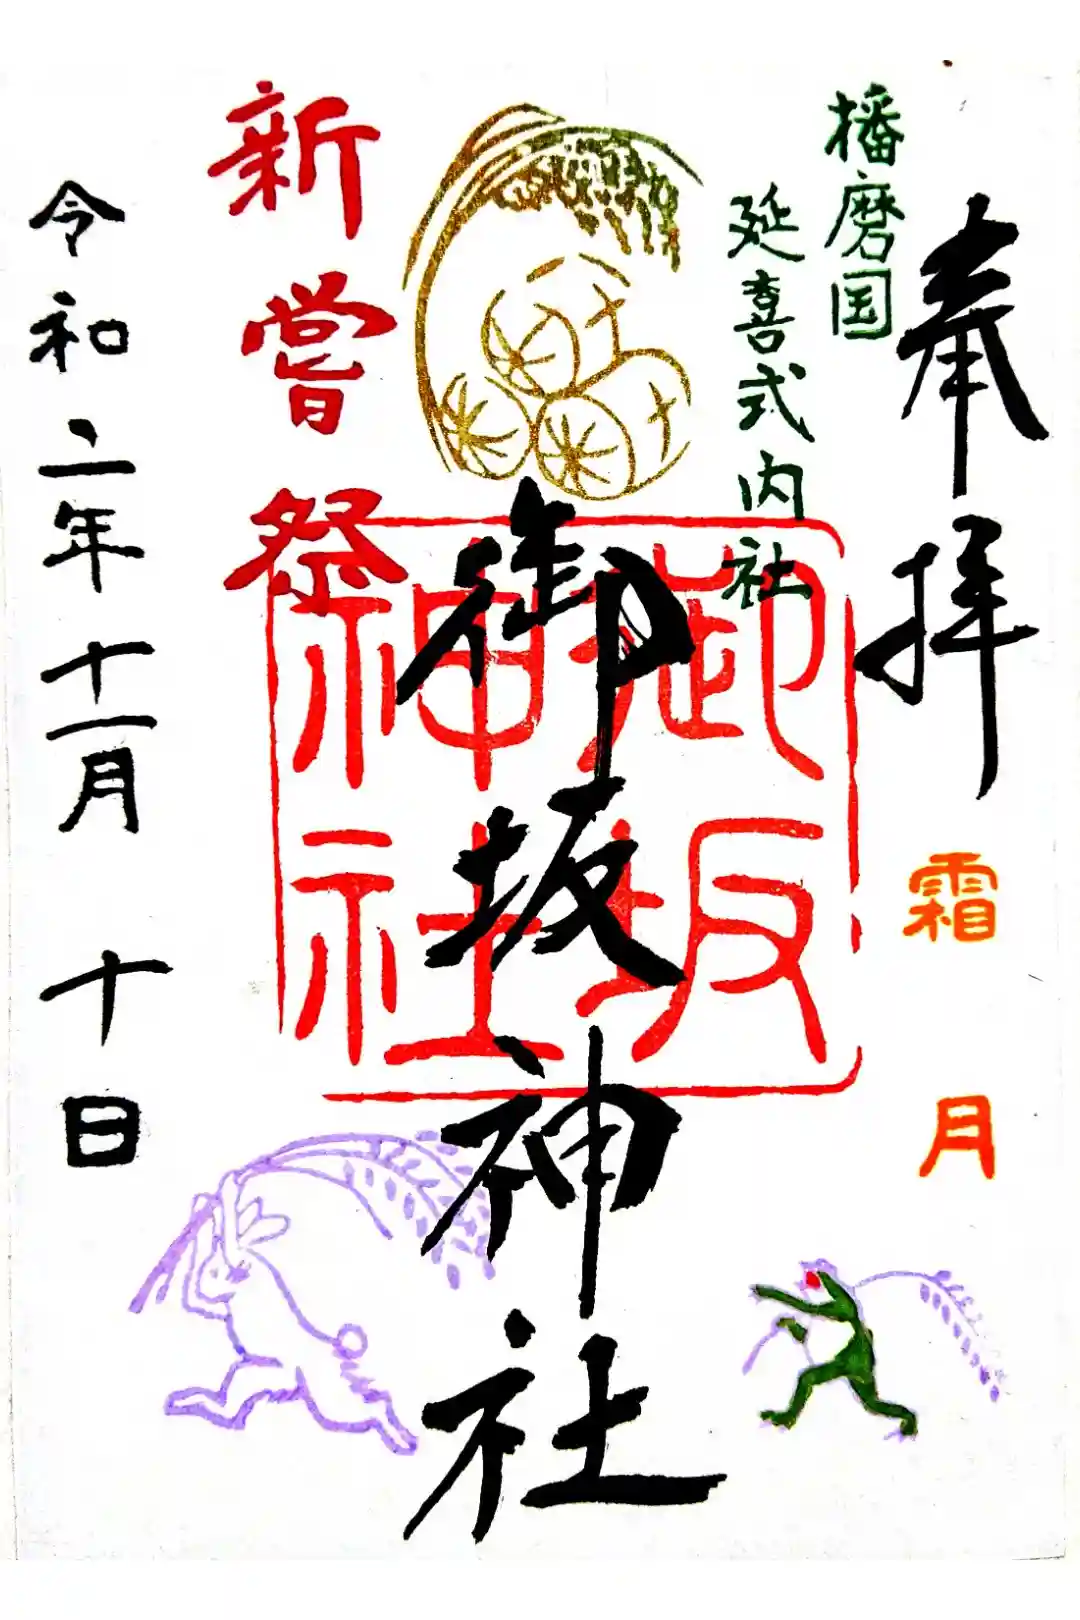 奉拝
霜月
播磨国
延喜式内社
御坂神社
御坂
神社
新嘗祭
令和二年十一月十日